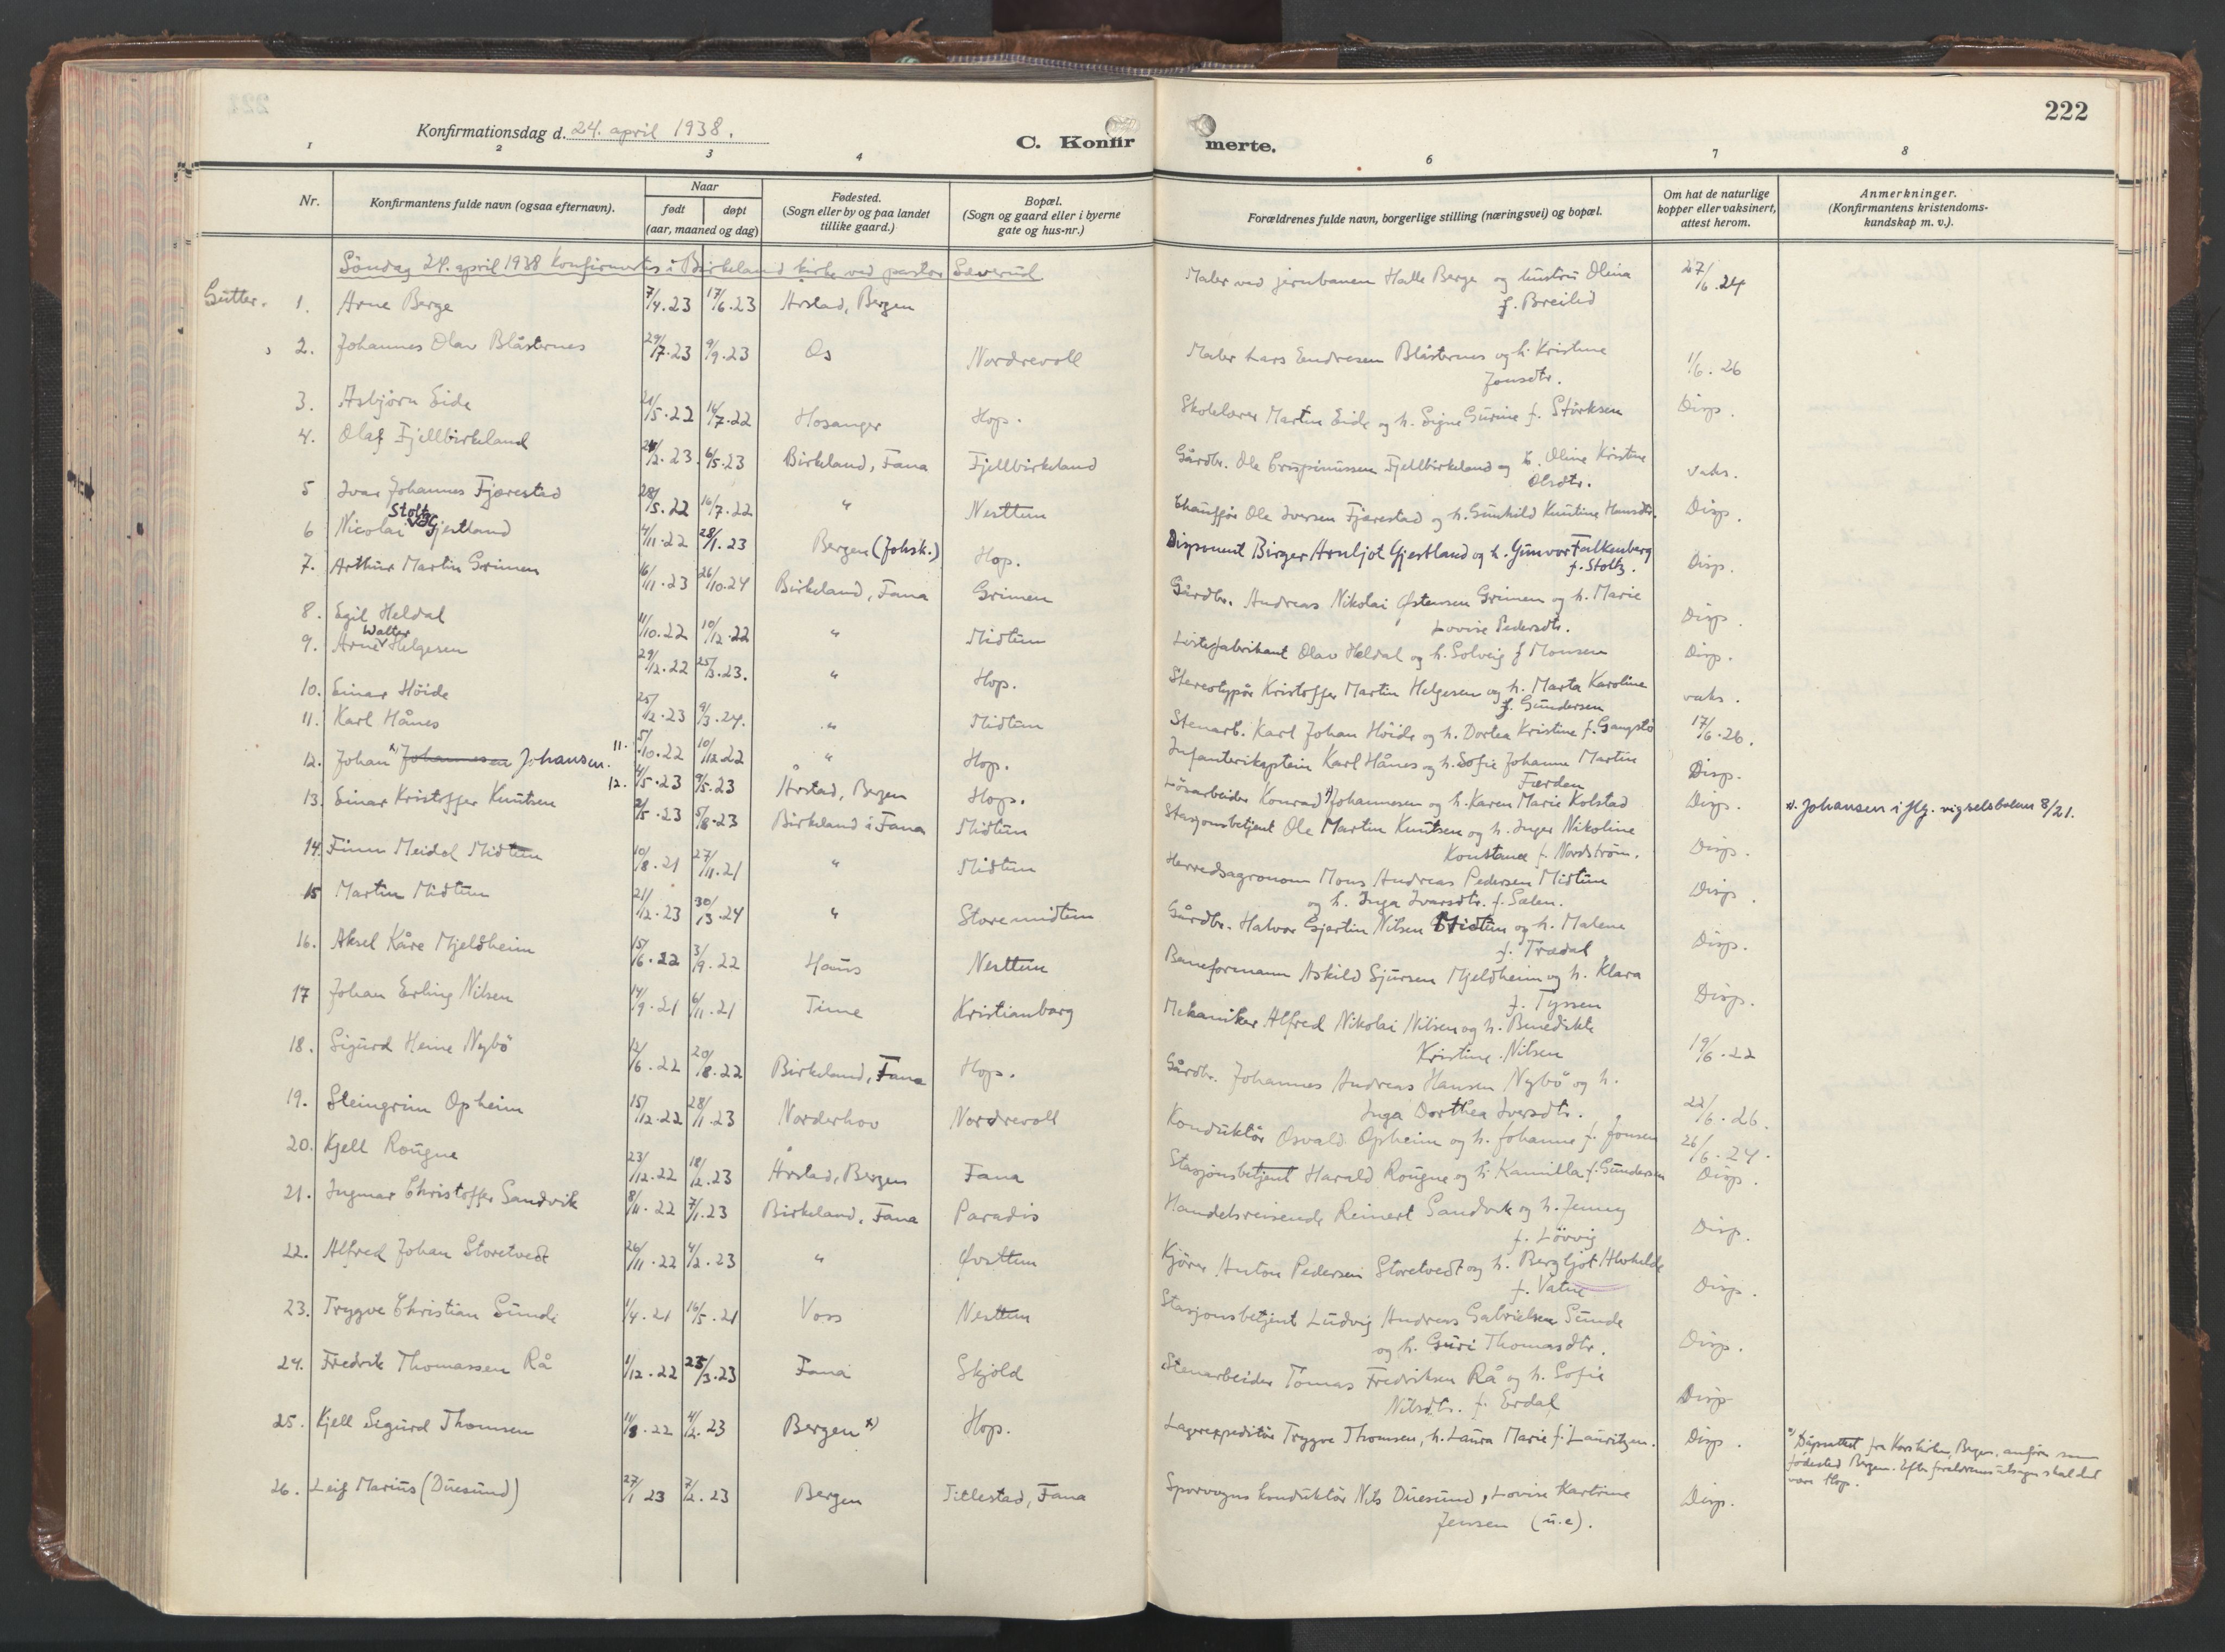 222
Konfirmationsdag d. 24. april 1938.
C. Konfir
merte.
1 2 3 4 6 7 8
Nr.
Konfirmantens fulde navn (ogsaa efternavn).
Naar
født døpt
(aar, maaned og dag)
Fødested.
(Sogn eller by og paa landet
tillike gaard.)
Bopæl.
(Sogn og gaard eller i byerne
gate og hus-nr.)
Forældrenes fulde navn, borgerlige stilling (næringsvei) og bopæl.
Om hat de naturlige
kopper eller vaksinert,
attest herom.
Anmerkninger.
(Konfirmantens kristendoms-
kundskap m. v.).
Søndag 24. april 1938 konfirmertes i Birkeland kirke ved pastor
Gutter. 1. Arne Berge 7/4.23 17/6.23 Årstad, Bergen Maler ved jernbanen Halle Berge og hustru Olina 27/6.24
f. Breilid
2. Johannes Olav Blåsternes 29/7.23 9/9.23 Os Nordrevoll Maler Lars Endresen Blåsternes og h. Kristine 1/6.26
Jonsdtr.
3. Asbjørn Eide 21/5.22 16/7.22 Hosanger Hop. Skolelærer Martin Eide og h. Signe Gurine f. Størksen Disp.
4. Olaf Fjellbirkeland 24/2.23. 6/5.23 Birkeland, Fana Fjellbirkeland Gårdbr. Ole Crispinussen Fjellbirkeland og h. Oline Kristine vaks.
Olsdtr.
5 Ivar Johannes Fjærestad 28/5.22 16/7.22 " Nesttun Chauffør Ole Iversen Fjærestad og h. Gunhild Knutine Hansdtr. Disp.
6 Nicolai Stoltz Gjestland 4/11.22 28/1.23 Bergen (Johsk.) Hop. Disponent Birger Arnljot Gjestland og h. Gunvor Falkenberg Disp.
f. Stoltz.
7. Arthur Martin Grimen 16/11.23 26/10.24 Birkeland, Fana Grimen Gårdbr. Andreas Nikolai Østensen Grimen og h. Marie Disp.
Lovise Pedersdtr.
8. Egil Heldal 11/10.22 10/12.22 " Midtun Listefabrikant Olav Heldal og h. Solveig f Monsen Disp.
9. Arne Walter Helgesen 29/12.22 25/3.23. " Hop. Stereotypør Kristoffer Martin Helgesen og h. Marta Karoline vaks.
f. Gundersen
10. Einar Höide 25/12.23 9/3.24. " Midtun Stenarb. Karl Johan Höide og h. Dortea Kristine f. Gangstø 17/6.26.
11. Karl Hånes 11. 5/10.22 10/12.22 " Hop. Infanterikaptein Karl Hånes og h. Sofie Johanne Martin Disp.
Færden
12. Johan x) Johannesen Johansen. 12. 4/5.23 9/5.23 Årstad, Bergen Hop. Løsarbeider Konrad x) Johannesen og h. Karen Marie Kolstad Disp. x). Johansen i flg. vigselsboken 8/21.
13. Einar Kristoffer Knutsen 2/5.23 5/8.23 Birkeland i Fana Midtun Stasjonsbetjent Ole Martin Knutsen og h. Inger Nikoline Disp.
Konstanse f. Nordstrøm.
14. Finn Meidel Midtun 10/8.21 27/11.21 " Midtun Herredsagronom Mons Andreas Pedersen Midtun Disp.
og h. Inga Ivarsdtr. f. Sælen.
15 Martin Midtun 21/12.23 30/3.24 " Store midtun Gårdbr. Halvor Gjertin Nilsen Midtun og h. Malene Disp.
f. Trædal
16. Aksel Kåre Mjeldheim 15/6.22 3/9.22 Haus Nesttun Baneformann Askild Sjursen Mjeldheim og h. Klara Disp.
f. Tyssen
17 Johan Erling Nilsen 14/9.21 6/11.21 Time Kristianborg Mekaniker Alfred Nikolai Nilsen og h. Benedikte
Kristine Nilsen 19/6.22
18. Sigurd Heine Nybö 12/6.22 20/8.22 Birkeland, Fana Hop. Gårdbr. Johannes Andreas Hansen Nybö og h.
Inga Dorthea Iversdtr. 22/6.26.
19. Steingrim Opheim 15/12.22 28/1.23 Norderhov Nordrevoll Konduktör Osvald Opheim og h. Johanne f. Jonsen 26/6.24.
20. Kjell Rougne 23/12.22 18/2.23 Årstad, Bergen Fana Stasjonsbetjent Harald Rougne og h. Kamilla f. Gundersen Disp.
21. Ingmar Christoffer Sandvik 8/11.22 7/1.23 Birkeland, Fana Paradis Handelsreisende Reinert Sandvik og h. Jenny Disp.
f. Lövvig
22. Alfred Johan Storetvedt 26/11.22 4/2.23 " Øvsttun Kjörer Anton Pedersen Storetvedt og h. Bergljot Alvhilde Disp.
f. Vatne
23. Trygve Christian Sunde 1/4.21 16/5.21 Voss Nesttun Stasjonsbetjent Ludvig Andreas Gabrielsen Sunde Disp.
og h. Guri Thomasdtr.
24. Fredrik Thomassen Rå 1/12.22 25/3.23 Fana Skjold Stenarbeider Tomas Fredriksen Rå og h. Sofie Disp
Nilsdtr. f. Erdal
25. Kjell Sigurd Thomsen 11/8.22 4/2.23 Bergen x) Hop. Lagerexpeditör Trygve Thomsen, h. Laura Marie f. Lauritzen. Disp. x) Dåpsattest fra Korskirken, Bergen. anfører som
fødested Bergen. Efter foreldrenes utsagn skal det
være Hop.
26. Leif Marius (Duesund) 27/1 23 7/2.23 Bergen Titlestad, Fana Sporvognskonduktör Nils Duesund, Lovise Katrine Disp.
Jensen (u.e).